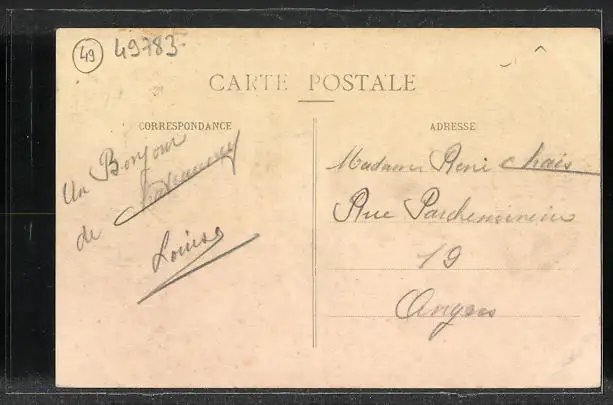 49
49783.
CARTE POSTALE
CORRESPONDANCE
Un Bonjour
de
Louise
ADRESSE
Madame René Chais
Rue Parcheminerie
19
Angers